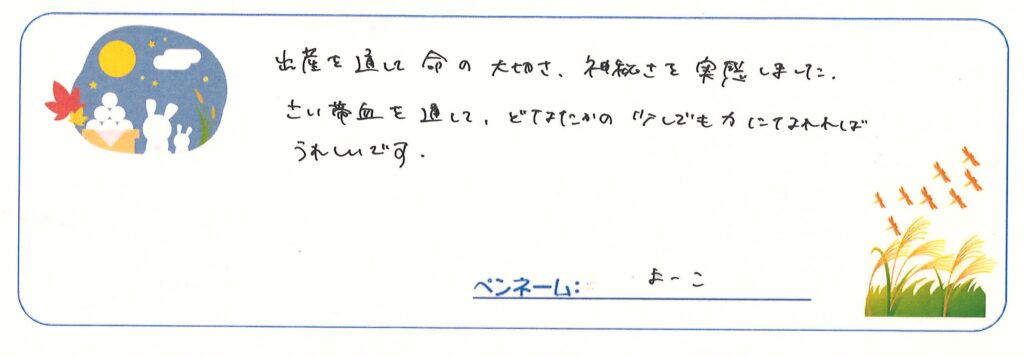 出産を通して命の大切さ、神秘さを実感しました.
さい帯血を通して、どなたかの少しでも力になれれば
うれしいです.
ペンネーム: よーこ